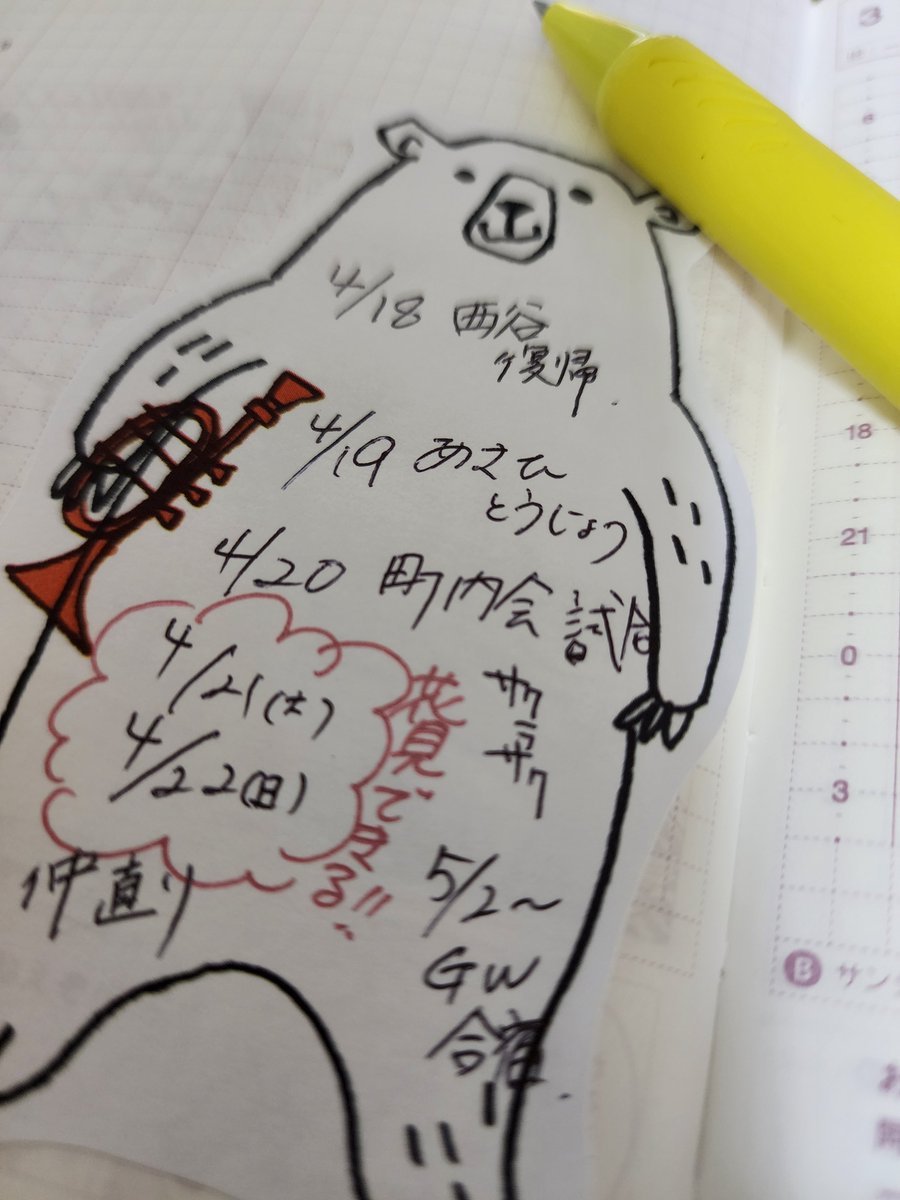 4/18 西谷
復帰.
4/19 あさひ
とうじょう
4/20 町内会 試合
4/21(土)
4/22(日)
花見できる!!
サクラサク
仲直り
5/2〜
GW
合宿.
3
6
18
21
0
3
B サン